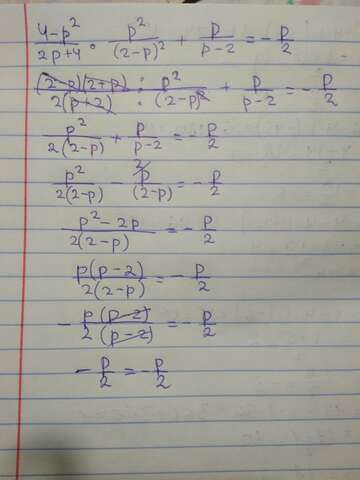 (4-p²)/(2p+4) · p²/(2-p)² + p/(p-2) = -p/2
(2-p)(2+p)/2(p+2) : p²/(2-p)² + p/(p-2) = -p/2
p²/2(2-p) + p/(p-2) = -p/2
p²/2(2-p) - 2/ p/(2-p) = -p/2
(p²-2p)/2(2-p) = -p/2
p(p-2)/2(2-p) = -p/2
-p(p-2)/2(p-2) = -p/2
-p/2 = -p/2